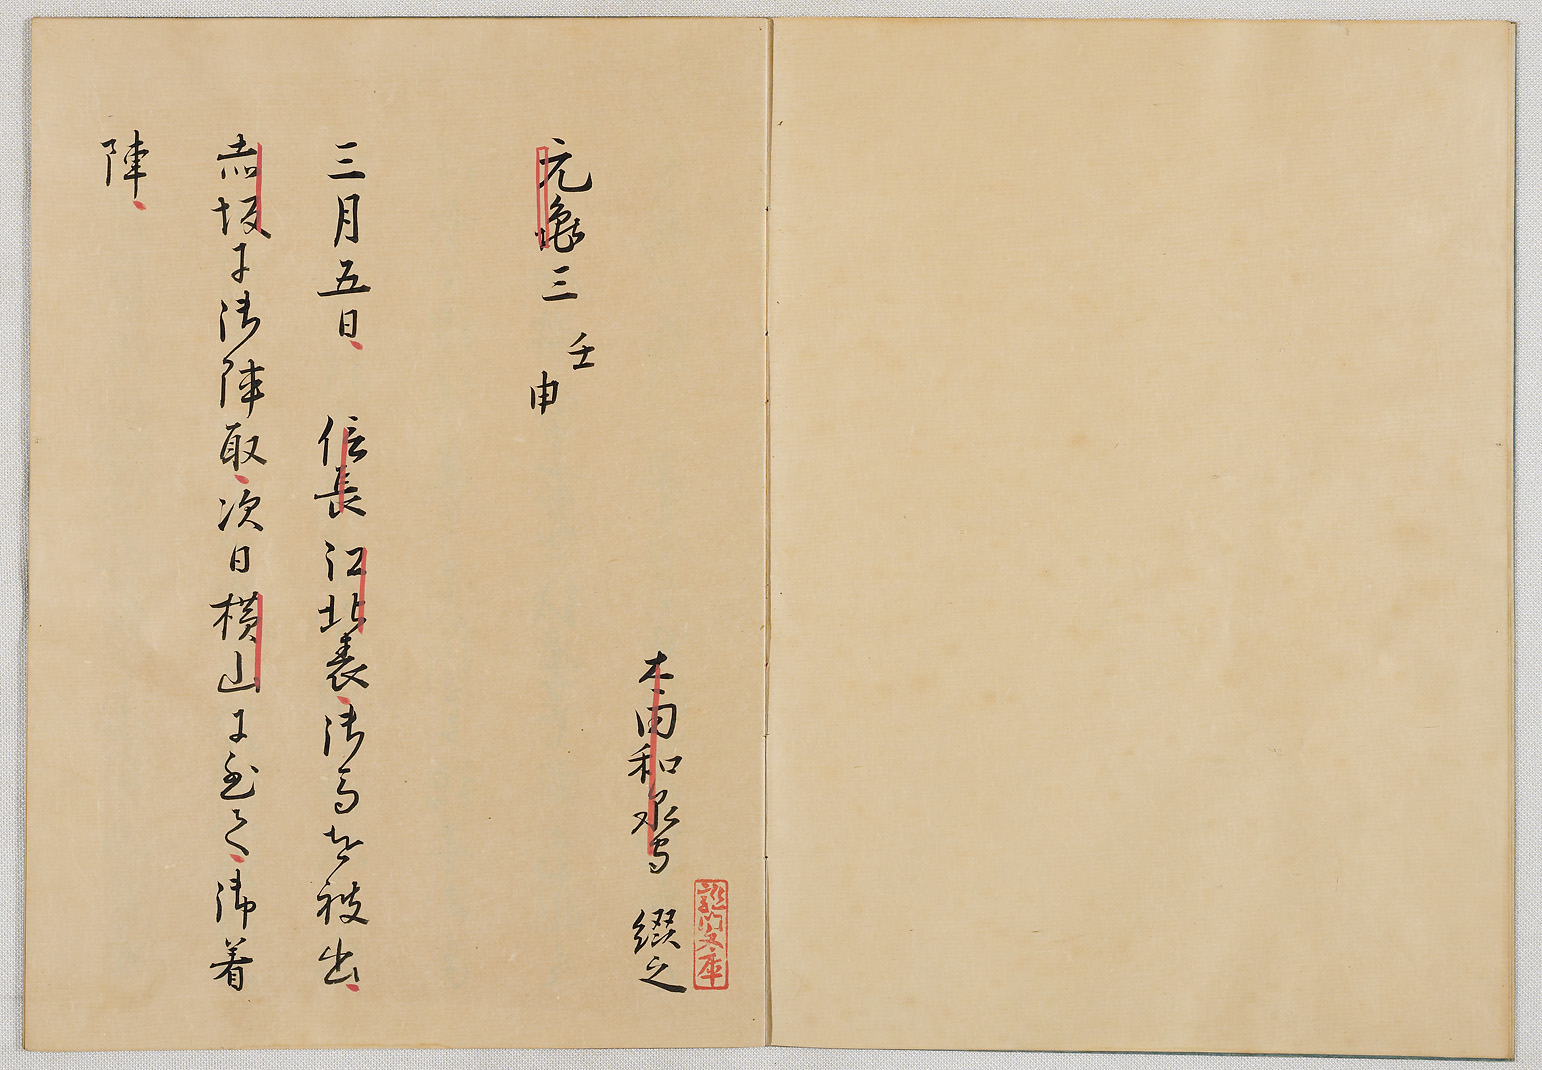 龍門文庫
太田和泉守 綴之
元亀三 壬申
三月五日 信長江北表御馬を被出
赤坂に御陣取次日横山に至て御着
陣